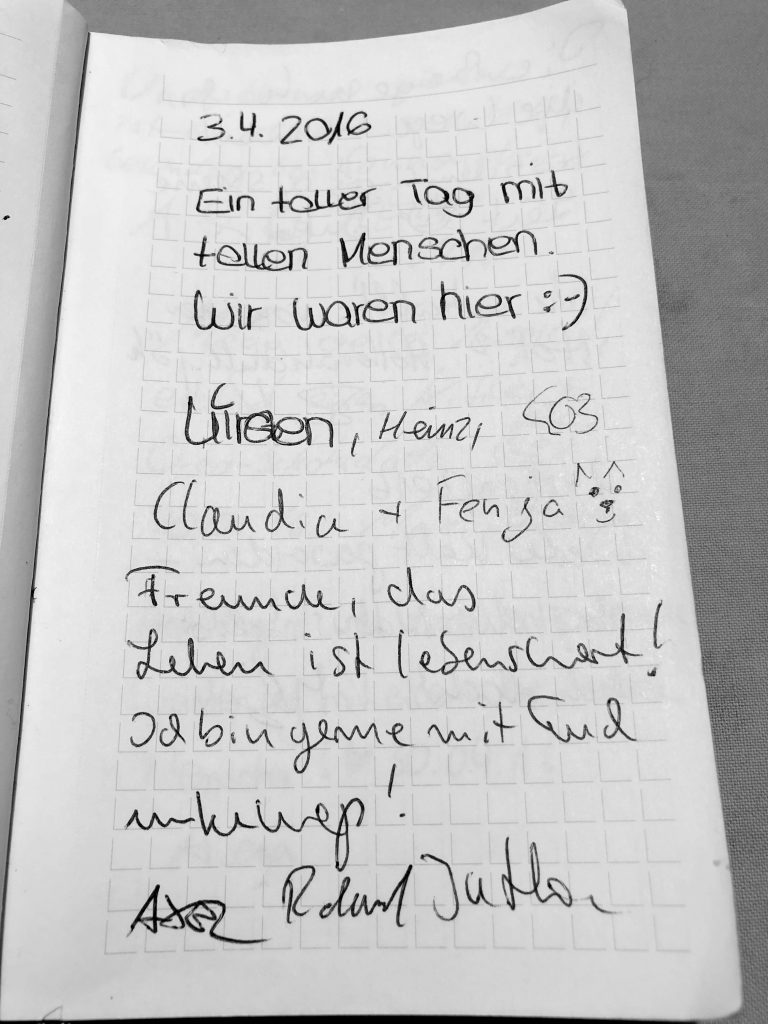 3.4.2016
Ein toller Tag mit
tollen Menschen.
Wir waren hier :-)
Jürgen, Heinz,
Claudia + Fenja
Freunde, das
Leben ist lebenswert!
Ich bin gerne mit Euch
unterwegs!
Axel Roland